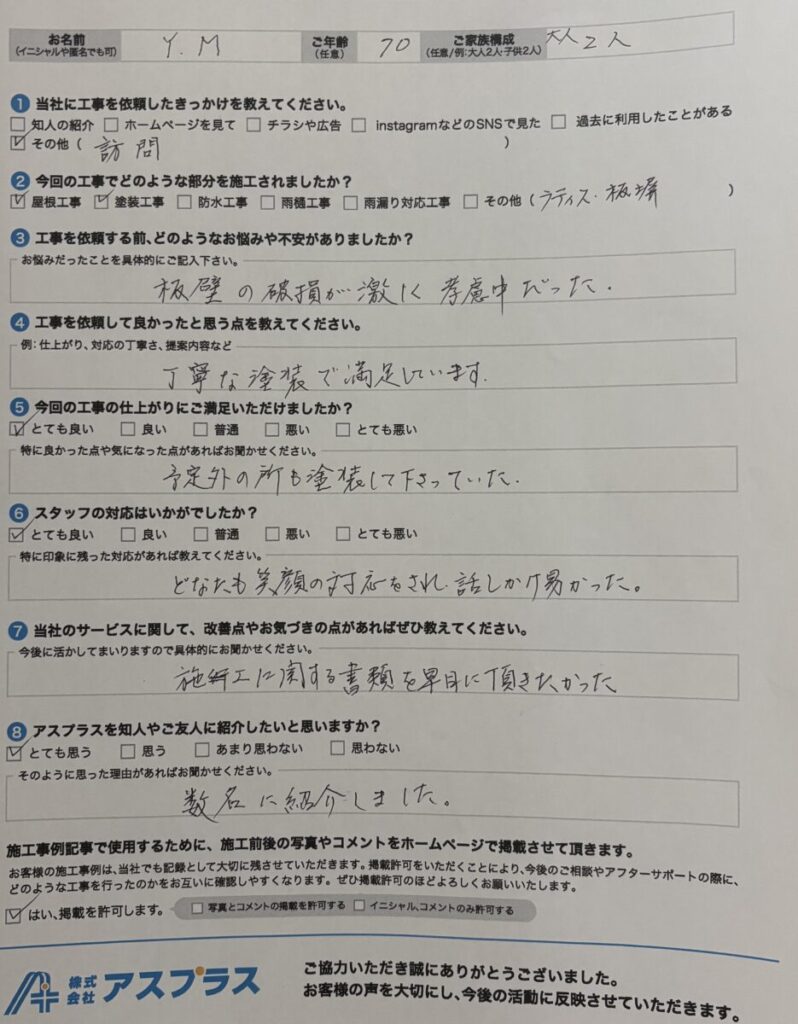 お名前 (イニシャルや匿名でも可) Y.M ご年齢 (任意) 70 ご家族構成 (任意/例:大人2人・子供2人) 大人2人
❶ 当社に工事を依頼したきっかけを教えてください。
☐ 知人の紹介 ☐ ホームページを見て ☐ チラシや広告 ☐ instagramなどのSNSで見た ☐ 過去に利用したことがある
☑ その他 ( 訪問 )
❷ 今回の工事でどのような部分を施工されましたか?
☑ 屋根工事 ☑ 塗装工事 ☐ 防水工事 ☐ 雨樋工事 ☐ 雨漏り対応工事 ☐ その他 ( ラティス・板塀 )
❸ 工事を依頼する前、どのようなお悩みや不安がありましたか?
お悩みだったことを具体的にご記入下さい。
板壁の破損が激しく考慮中だった.
❹ 工事を依頼して良かったと思う点を教えてください。
例:仕上がり、対応の丁寧さ、提案内容など
丁寧な塗装で満足しています.
❺ 今回の工事の仕上がりにご満足いただけましたか?
☑ とても良い ☐ 良い ☐ 普通 ☐ 悪い ☐ とても悪い
特に良かった点や気になった点があればお聞かせください。
予定外の所も塗装して下さっていた.
❻ スタッフの対応はいかがでしたか?
☑ とても良い ☐ 良い ☐ 普通 ☐ 悪い ☐ とても悪い
特に印象に残った対応があれば教えてください。
どなたも笑顔の対応をされ.話しかけ易かった。
❼ 当社のサービスに関して、改善点やお気づきの点があればぜひ教えてください。
今後に活かしてまいりますので具体的にお聞かせください。
施工に関する書類を早目に頂きたかった
❽ アスプラスを知人やご友人に紹介したいと思いますか?
☑ とても思う ☐ 思う ☐ あまり思わない ☐ 思わない
そのように思った理由があればお聞かせください。
数名に紹介しました。
施工事例記事で使用するために、施工前後の写真やコメントをホームページで掲載させて頂きます。
お客様の施工事例は、当社でも記録として大切に残させていただきます。掲載許可をいただくことにより、今後のご相談やアフターサポートの際に、
どのような工事を行ったのかをお互いに確認しやすくなります。ぜひ掲載許可のほどよろしくお願いいたします。
☑ はい、掲載を許可します。 ☐ 写真とコメントの掲載を許可する ☐ イニシャル、コメントのみ許可する
株式会社 アスプラス
ご協力いただき誠にありがとうございました。
お客様の声を大切にし、今後の活動に反映させていただきます。